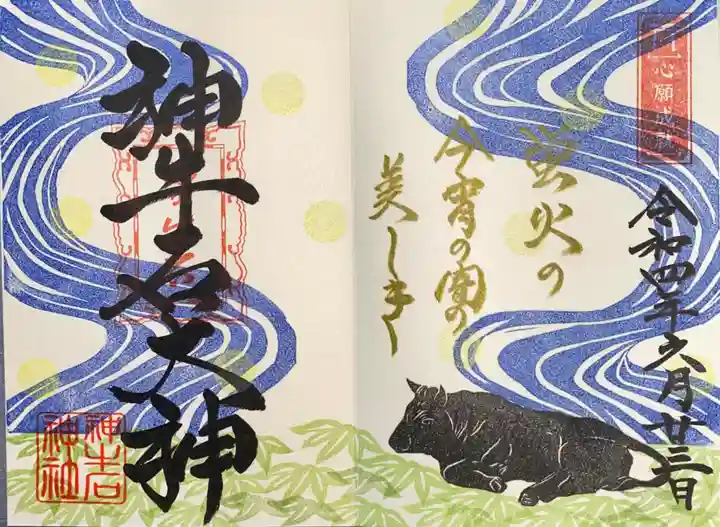 心願成就
令和四年六月廿三日
蛍火の
今宵の闇の
美しき
神牛石天神
神牛石
神社